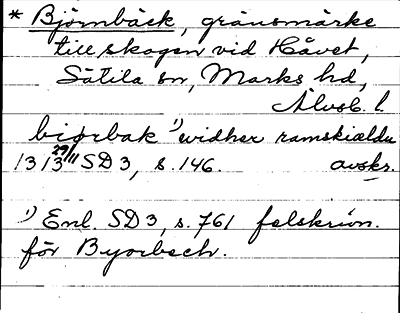 * Björnbäck, gränsmärke
till skogen vid Håvet,
Sätila sn, Marks hd,
Älvsb. l
biorbak ¹) widher ramskiældu
1313 29/11 SD 3, s. 146. avskr.
¹) Enl. SD 3, s. 761 felskrivn.
för Byorbech.